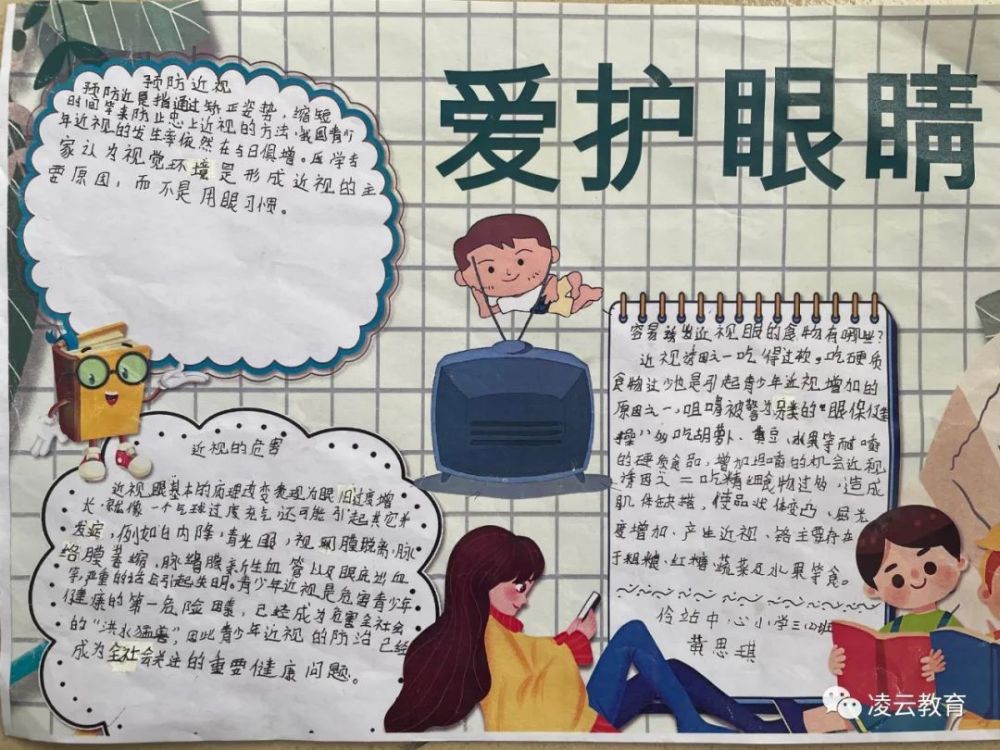 爱护眼睛
预防近视
预防近视是指通过矫正姿势，缩短
时间等来防止患上近视的方法，我国青少
年近视的发生率依然在与日俱增。医学专
家认为视觉环境是形成近视的主
要原因，而不是用眼习惯。
容易诱发近视眼的食物有哪些？
近视诱因之一吃得过软。吃硬质
食物过少也是引起青少年近视增加的
原因之一，咀嚼被誉为另类的“眼保健
操”如吃胡萝卜、黄豆、水果等耐嚼
的硬质食品，增加咀嚼的机会近视
诱因之二吃精细食物过多，造成
肌体缺铬，使晶状体变凸、屈光
度增加、产生近视、铬主要存在
于粗糖、红糖蔬菜及水果等食。
伶站中心小学三四班
黄思琪
近视的危害
近视眼基本的病理改变表现为眼过度增
长，就像一个气球过度充气，还可能引起其它并
发症，例如白内障，青光眼，视网膜脱离，脉
络膜萎缩，脉络膜新生血管以及眼底出血
等，严重的话会引起失明。青少年近视是危害青少年
健康的第一危险因素，已经成为危害全社会
的“洪水猛兽”，因此青少年近视的防治已经
成为全社会关注的重要健康问题。
凌云教育